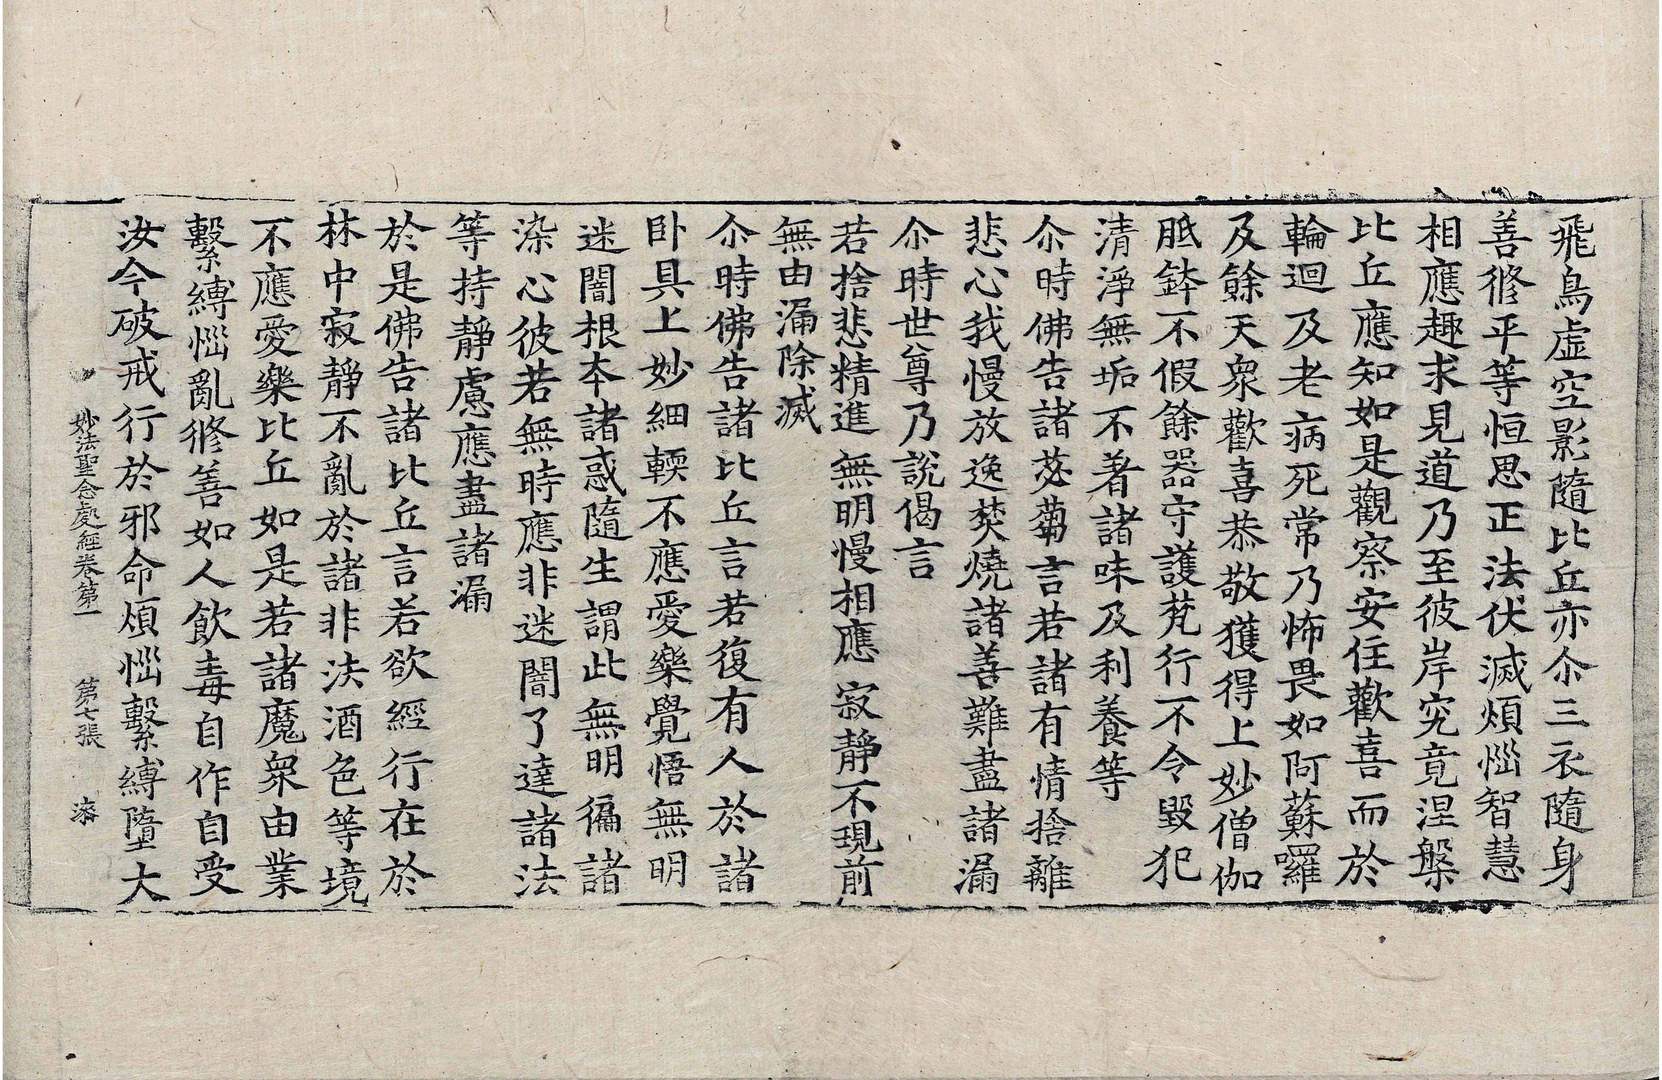 飛鳥虛空影隨比丘亦尒三衣隨身
善修平等恒思正法伏滅煩惱智慧
相應趣求見道乃至彼岸究竟涅槃
比丘應知如是觀察安住歡喜而於
輪迴及老病死常乃怖畏如阿蘇囉
及餘天衆歡喜恭敬獲得上妙僧伽
胝鉢不假餘器守護梵行不令毀犯
清淨無垢不著諸味及利養等
尒時佛告諸苾蒭言若諸有情捨離
悲心我慢放逸焚燒諸善難盡諸漏
尒時世尊乃說偈言
若捨悲精進 無明慢相應 寂靜不現前
無由漏除滅
尒時佛告諸比丘言若復有人於諸
卧具上妙細輭不應愛樂覺悟無明
迷闇根本諸惑隨生謂此無明徧諸
染心彼若無時應非迷闇了達諸法
等持靜慮應盡諸漏
於是佛告諸比丘言若欲經行在於
林中寂靜不亂於諸非法酒色等境
不應愛樂比丘如是若諸魔衆由業
繫縛惱亂修善如人飲毒自作自受
汝今破戒行於邪命煩惱繫縛墮大
妙法聖念處經卷第一 第七張